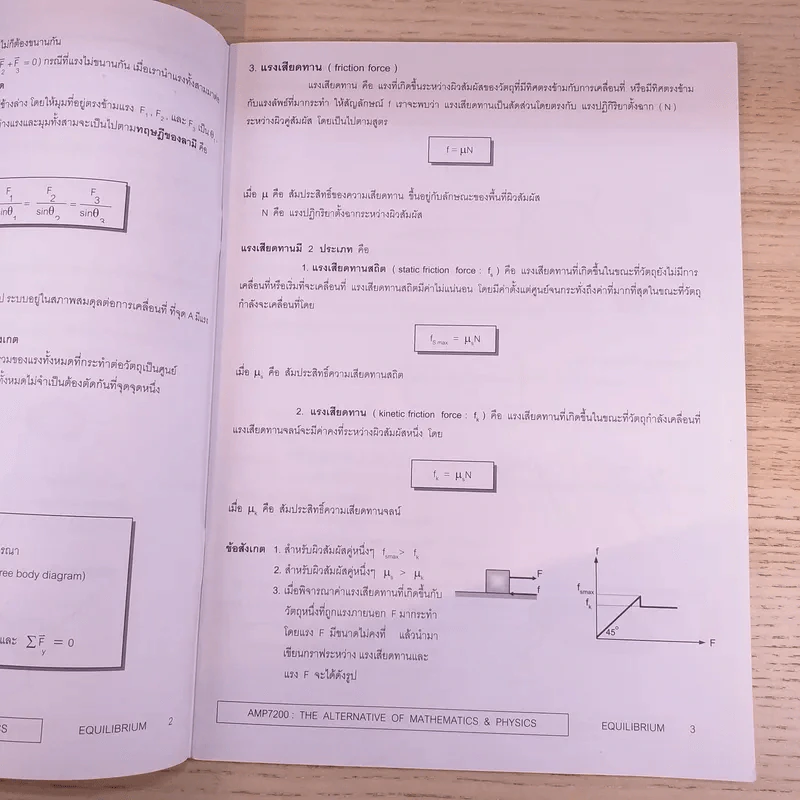 ไม่ก็ต้องขนานกัน
F₂ + F₃ = 0) กรณีที่แรงไม่ขนานกัน เมื่อเรานำแรงทั้งสามมาต่อ
ข้างล่าง โดยให้มุมที่อยู่ตรงข้ามแรง F₁, F₂, และ F₃ เป็น θ₁,
างแรงและมุมทั้งสามจะเป็นไปตามทฤษฎีของลามี คือ
F₁/sinθ₁ = F₂/sinθ₂ = F₃/sinθ₃
ป ระบบอยู่ในสภาพสมดุลต่อการเคลื่อนที่ ที่จุด A มีแรง
งเกต
วมของแรงทั้งหมดที่กระทำต่อวัตถุเป็นศูนย์
ทั้งหมดไม่จำเป็นต้องตัดกันที่จุดจุดหนึ่ง
รณา
ree body diagram)
และ ΣF⃗y = 0
CS
EQUILIBRIUM 2
3. แรงเสียดทาน ( friction force )
แรงเสียดทาน คือ แรงที่เกิดขึ้นระหว่างผิวสัมผัสของวัตถุที่มีทิศตรงข้ามกับการเคลื่อนที่ หรือมีทิศตรงข้าม
กับแรงลัพธ์ที่มากระทำ ให้สัญลักษณ์ f เราจะพบว่า แรงเสียดทานเป็นสัดส่วนโดยตรงกับ แรงปฏิกิริยาตั้งฉาก ( N )
ระหว่างผิวคู่สัมผัส โดยเป็นไปตามสูตร
f = μN
เมื่อ μ คือ สัมประสิทธิ์ของความเสียดทาน ขึ้นอยู่กับลักษณะของพื้นที่ผิวสัมผัส
N คือ แรงปฏิกิริยาตั้งฉากระหว่างผิวสัมผัส
แรงเสียดทานมี 2 ประเภท คือ
1. แรงเสียดทานสถิต ( static friction force : fₛ ) คือ แรงเสียดทานที่เกิดขึ้นในขณะที่วัตถุยังไม่มีการ
เคลื่อนที่หรือเริ่มที่จะเคลื่อนที่ แรงเสียดทานสถิตมีค่าไม่แน่นอน โดยมีค่าตั้งแต่ศูนย์จนกระทั่งถึงค่าที่มากที่สุดในขณะที่วัตถุ
กำลังจะเคลื่อนที่โดย
fS max = μₛN
เมื่อ μₛ คือ สัมประสิทธิ์ความเสียดทานสถิต
2. แรงเสียดทาน ( kinetic friction force : fₖ ) คือ แรงเสียดทานที่เกิดขึ้นในขณะที่วัตถุกำลังเคลื่อนที่
แรงเสียดทานจลน์จะมีค่าคงที่ระหว่างผิวสัมผัสหนึ่ง โดย
fₖ = μₖN
เมื่อ μₖ คือ สัมประสิทธิ์ความเสียดทานจลน์
ข้อสังเกต 1. สำหรับผิวสัมผัสคู่หนึ่งๆ fsmax > fₖ
2. สำหรับผิวสัมผัสคู่หนึ่งๆ μₛ > μₖ
3. เมื่อพิจารณาค่าแรงเสียดทานที่เกิดขึ้นกับ
วัตถุหนึ่งที่ถูกแรงภายนอก F มากระทำ
โดยแรง F มีขนาดไม่คงที่ แล้วนำมา
เขียนกราฟระหว่าง แรงเสียดทานและ
แรง F จะได้ดังรูป
F
f
f
fsmax
fₖ
45°
F
AMP7200 : THE ALTERNATIVE OF MATHEMATICS & PHYSICS
EQUILIBRIUM 3